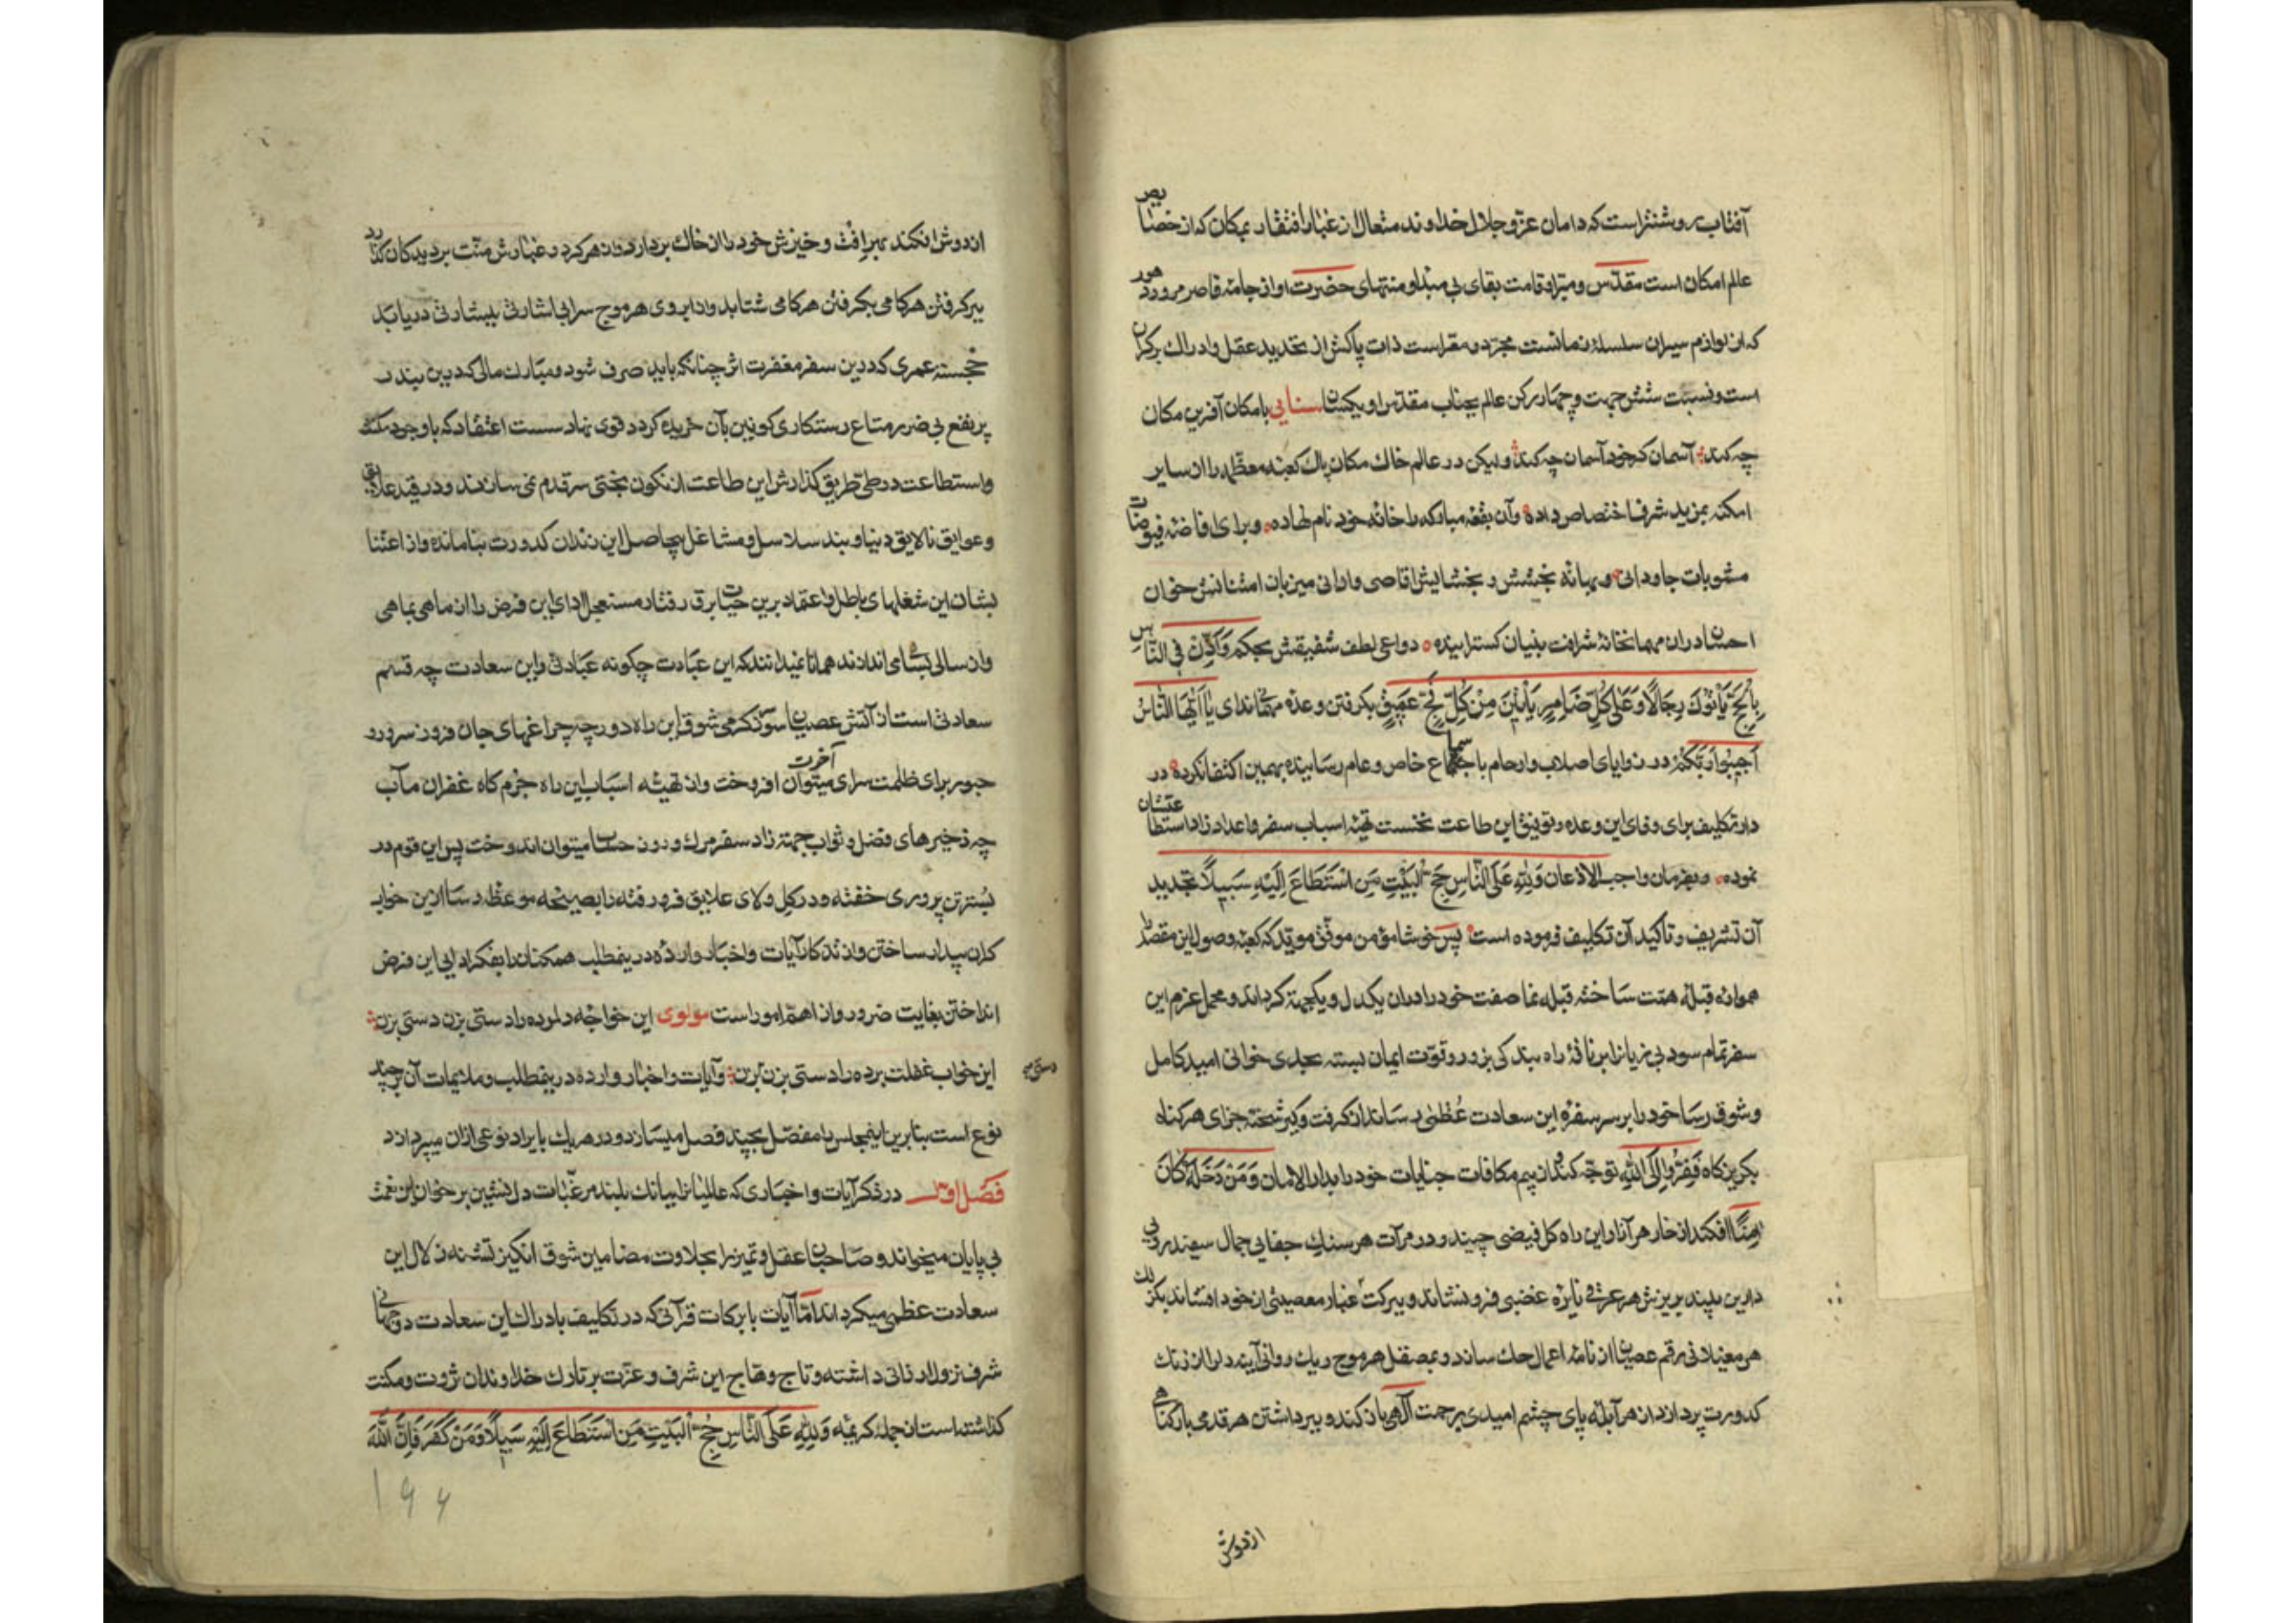 آفتاب روشنتر است که دامان عز و جلال خداوند متعال از غبار افتقار بمکان که از خصایص
عالم امکان است مقدّس و مبرا و قامت بقای بی مبدا و منتهای حضرت او از جامهٔ قاصر مرور دهور
که از لوازم سیران سلسلهٔ زمانست مجرّد و معراست ذات پاکش از تحدید عقل و ادراک برکران
است و نسبت شش جهت و چهار رکن عالم بجناب مقدّس او یکسان سنایی با مکان آفرین مکان
چه کند آسمان کر خود آسمان چه کند ولیکن در عالم خاک مکان پاک کعبهٔ معظّمه را از سایر
امکنه بمزید شرف اختصاص داده و آن بقعهٔ مبارکه را خانهٔ خود نام نهاده و برای افاضهٔ فیوضات
مثوبات جاودانی و بهانهٔ بخشش و بخشایش اقاصی و ادانی میزبان امتنانش خوان
احسان در ان مهمانخانهٔ شرافت بنیان کسترانیده دواعی لطف شفیقش بحکم وَاَذِّنْ فِی النَّاسِ
بِالْحَجِّ یَأْتُوكَ رِجَالًا وَعَلَى كُلِّ ضَامِرٍ يَأْتِينَ مِنْ كُلِّ فَجٍّ عَمِيقٍ بکرفتن وعدهٔ مهمان ندای یَا اَیُّهَا النَّاسُ
اَجِیبُوا رَبَّکُمْ در زوایای اصلاب و ارحام باجماع خاص و عام رسانیده بهمین اکتفا نکرده در
دار تکلیف برای وفای این وعده و توفیق این طاعت نخست تهیهٔ اسباب سفر و اعداد زاد استطاعتشان
نموده و بفرمان واجب الاذعان وَلِلّٰهِ عَلَى النَّاسِ حِجُّ الْبَيْتِ مَنِ اسْتَطَاعَ اِلَيْهِ سَبِيلًا تجدید
آن تشریف و تاکید آن تکلیف فرموده است پس خوشا مؤمن موفّق مویّد که کعبهٔ وصول این مقصد را
همواره قبلهٔ همّت ساخته قبله نما صفت خود را در ان یکدل و یکجهة کرداند و محمل عزم این
سفر تمام سود بی زیان را بر ناقهٔ راه بندکی بزور و قوّت ایمان بسته بحدی خوانی امید کامل
و شوق رسا خود را بر سر سفرهٔ این سعادت عُظمٰی رساند از کرفت و کیر شحنهٔ جزای هر کناه
بکریزکاه فَفِرُّوا اِلَی اللّٰهِ توجّه کند و از بیم مکافات جنایات خود را بدار الامان وَمَنْ دَخَلَهُ کَانَ
اٰمِنًا افکند از خار هر آزار این راه کل فیضی چیند و در مرآت هر سنك جفایی جمال سفید رویی
دارین بیند بریزش هر عرقی نایرهٔ غضبی فرو نشاند و ببرکت غبار معصیتی از خود افشاند بکزلك
هر مغیلانی رقم عصیان از نامهٔ اعمال حك سازد و بمصقل هر موج ریك روانی آینهٔ دل را از زنك
کدورت پردازد از هر آبلهٔ پای چشم امیدی برحمت آلهی باز کند و ببرداشتن هر قدمی بار کناهی
از دوش
از دوش افکند بهر افت و خیزش خود را از خاك بردارد و از هر کرد و غبارش منّت بردیدکان کذارد
ببر کرفتن هر کامی بکرفتن هر کامی شتابد و از ابروی هر موج سرابی اشارتی ببشارتی دریابد
خجسته عمری که درین سفر مغفرت اثر چنانکه باید صرف شود و مبارك مالی که درین بندر
پر نفع بی ضرر متاع رستکاری کونین بآن خریده کردد قوی نهاد سست اعتقاد که باوجود مکنت
و استطاعت در طی طریق کذارش این طاعت از نکون بختی سر قدم نمی سازند و در قید علایق
و عوایق نالایق دنیا و بند سلاسل و مشاغل بیحاصل این زندان کدورت بنا مانده و از اعتنا
بشان این شغلهای باطل و اعتماد برین حیات برق رفتار مستعجل ادای این فرض را از ماهی بماهی
و از سالی بسالی اندازند همانا نمیدانند که این عبادت چکونه عبادتی و این سعادت چه قسم
سعادتی است از آتش عصیان سوز کرمی شوق این راه دور چه چراغهای جان فروز سرور و
حبور برای ظلمت سرای آخرت میتوان افروخت و از تهیئه اسباب این راه جرم کاه غفران مآب
چه ذخیرهای فضل و ثواب جهة زاد سفر مرك و روز حساب میتوان اندوخت پس این قوم در
بستر تن پروری خفته و در کل و لای علایق فرو رفته را بصیحهٔ موعظه رسا ازین خواب
کران بیدار ساختن و از تذکار آیات و اخبار وارده درینمطلب همکنان را بفکر ادایی این فرض
انداختن بغایت ضرور و از اهمّ امور است مولوی این خواجه دلمرده را دستی بزن دستی بزن
این خواب غفلت برده را دستی بزن بزن و آیات و اخبار وارده درینمطلب و ملایمات آن بر چند
دستی
نوع است بنابرین اینمجلس را مفصّل بچند فصل میسازد و در هر یك بایراد نوعی ازان میپردازد
فصل اول در ذکر آیات و اخباری که عالمیان را ببانك بلند مرغّبات دل نشین بر خوان این نعمت
بی پایان میخواند و صاحبان عقل و تمیز را بحلاوت مضامین شوق انکیز تشنه زلال این
سعادت عظمی میکرداند امّا آیات با برکات قرآنی که در تکلیف بادراك این سعادت دو جهانی
شرف نزول ارزانی داشته و تاج وهاج این شرف و عزّت بر تارك خداوندان ثروت و مکنت
کذاشته است از جمله کریمهٔ وَلِلّٰهِ عَلَى النَّاسِ حِجُّ الْبَيْتِ مَنِ اسْتَطَاعَ اِلَيْهِ سَبِيلًا وَمَنْ كَفَرَ فَاِنَّ اللّٰهَ